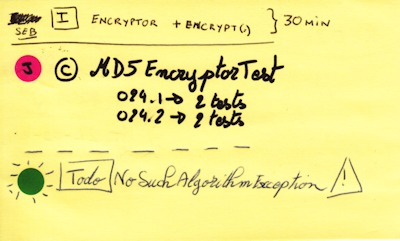 I ENCRYPTOR + ENCRYPT(.) } 30 MIN
SEB
J C MD5EncryptorTest
024.1→ 2 tests
024.2→ 2 tests
Todo NoSuchAlgorithmException !